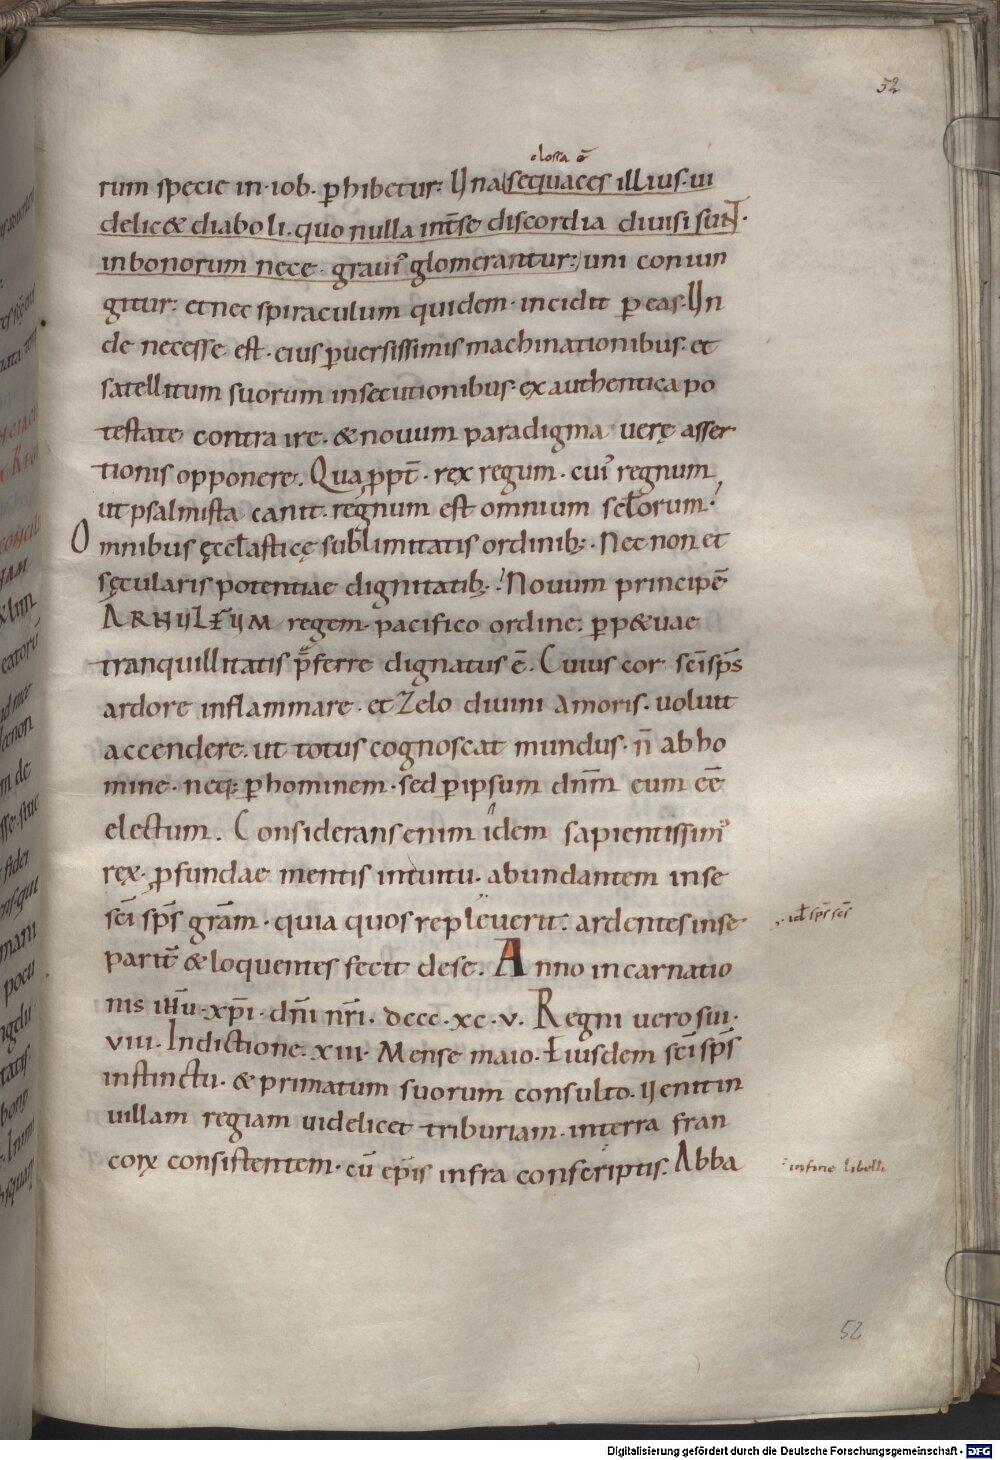 52
glosa ē
rum specie in·iob. ꝑhibetur: Una sequaces illius·ui
delic& diaboli. quo nulla int̄ se discordia diuisi sunt·
in bonorum nece· graui᾽ glomerantur: uni coniun
gitur: et nec spiraculum quidem· incidit ꝑ eas· Un
de necesse est· eius ꝑuersissimis machinationibus· et
satellitum suorum insecutionibus· ex authentica po
testate contra ire· & nouum paradigma uerę asser
tionis opponere. Qua ꝓpt̄· rex regum· cui᾽ regnum
ut psalmista canit· regnum est omnium scl̄orum·
Omnibus ęccl̄asticę sublimitatis ordinib;· Nec non et
sęcularis potentiae dignitatib;· Nouum principē
ARNULFUM regem· pacifico ordine: ꝑp&uae
tranquillitatis p̄ferre dignatus ē· Cuius cor sc̄i sp̄s
ardore inflammare· et Zelo diuini Amoris· uoluit
accendere. ut totus cognoscat mundus· n̄ ab ho
mine· neq; ꝑ hominem· sed ꝑ ipsum dn̄m eum eē
electum. Considerans enim idem sapientissim᾽
rex· ꝓfundae mentis intuitu· abundantem in se
sc̄i sp̄s gr̄am· quia quos repleuerit: ardentes in se
· id̄ sp̄s sc̄s
parit̄ & loquentes fecit de se. Anno incarnatio
nis ihū· xp̄i· dn̄i nr̄i· dccc·xc·v· Regni uero sui·
VIII· Indictione· XIII· Mense maio· Eiusdem sc̄i sp̄s
instinctu· & primatum suorum consulto· Uenit in
uillam regiam uidelicet triburiam· in terra fran
coꝝ consistentem· cū ep̄is infra conscriptis: Abba
in fine libelli
52
Digitalisierung gefördert durch die Deutsche Forschungsgemeinschaft - DFG